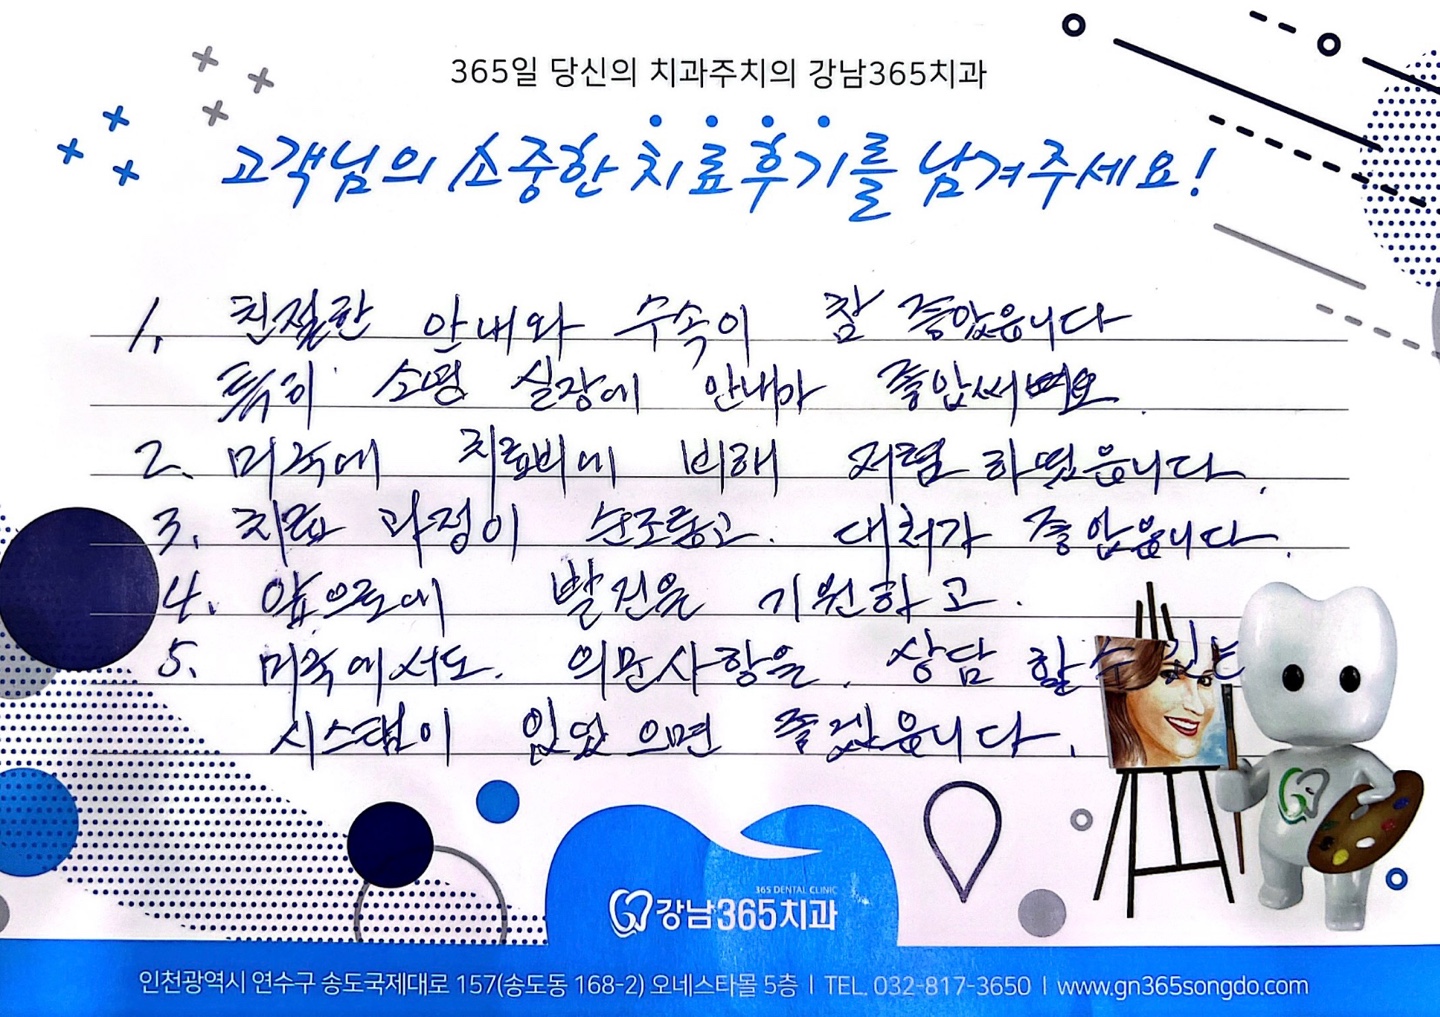 365일 당신의 치과주치의 강남365치과
고객님의 소중한 치료후기를 남겨주세요!
1. 친절한 안내와 수속이 참 좋았읍니다
특히 소명 실장에 안내가
2. 미국에 치료비에 비해 저렴 하였읍니다.
3. 치료 과정이 순조롭고. 대처가 좋았읍니다.
4. 앞으로에 발전을 기원하고.
5. 미국에서도. 의문사항을. 상담 할 수 있는
시스템이 있었으면 좋겠읍니다.
365 DENTAL CLINIC
강남365치과
인천광역시 연수구 송도국제대로 157(송도동 168-2) 오네스타몰 5층 | TEL. 032-817-3650 | www.gn365songdo.com